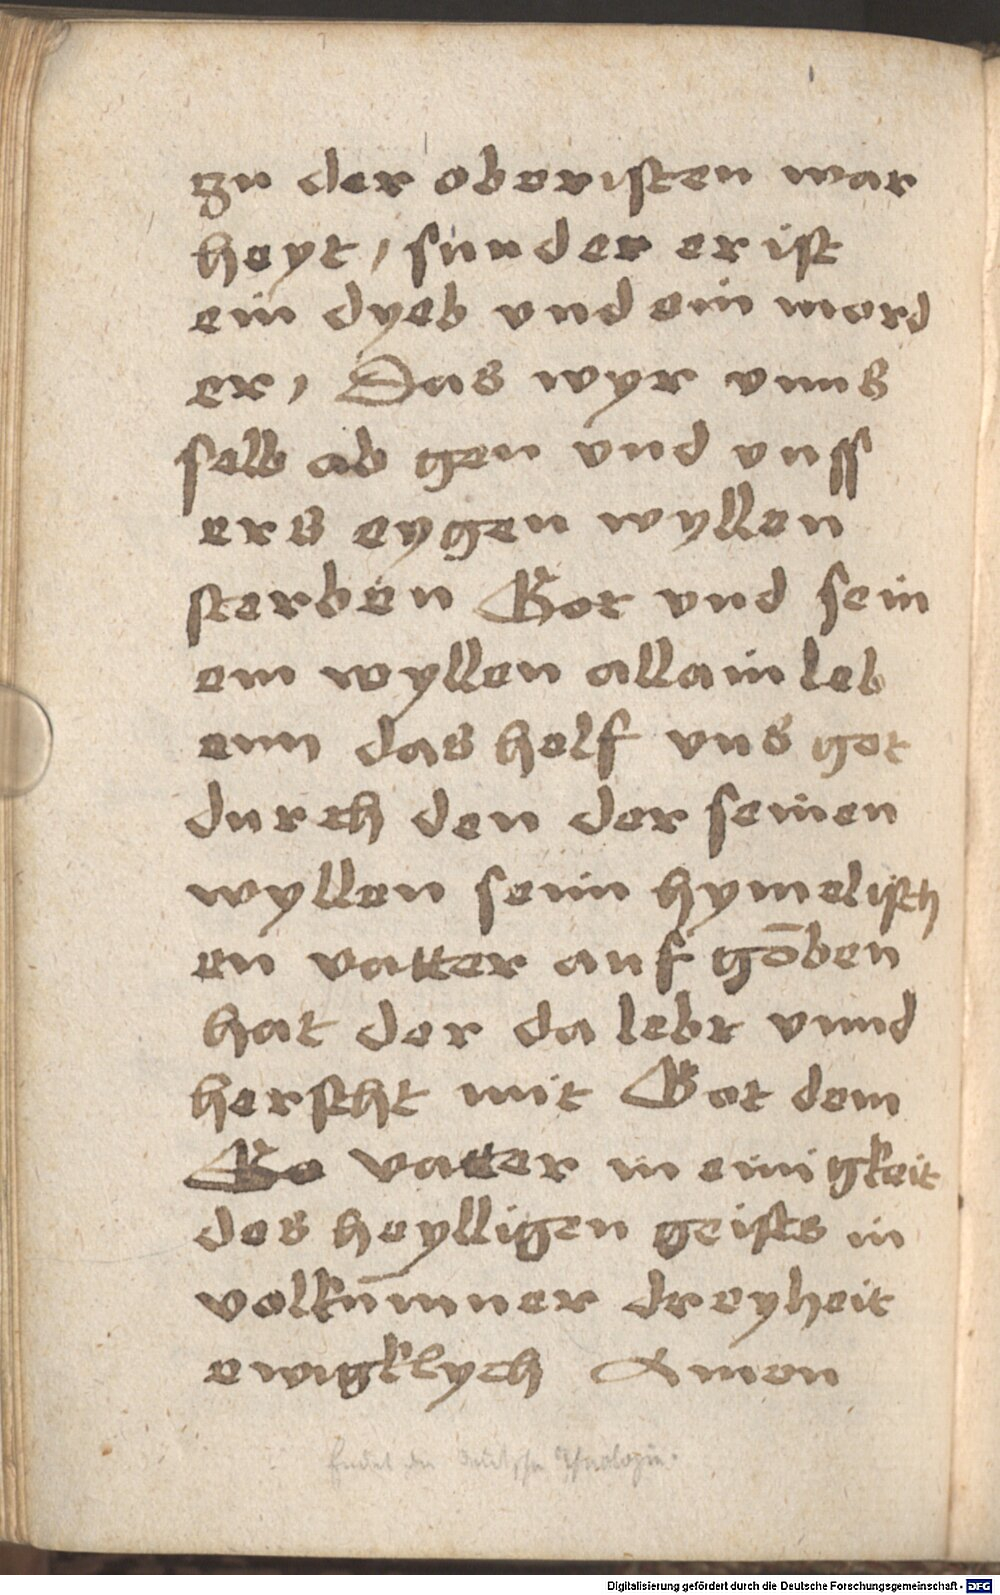 zu der oberisten war
heyt, sunder er ist
ein dyeb vnd ein mord
er, Das wyr vnns
selb ab gen vnd vnss
ers eygen wyllen
sterben Got vnd sein
em wyllen allain leb
enn das helf vns got
durch den der seinen
wyllen seinn hymelisch
en vatter auf gōben
hat der da lebt vnnd
herscht mit Got dem
Go vatter in einigkeit
des heylligen geists in
volkūmner dreyheit
ewigklych Amen
Endet die deutsche Theologie.
Digitalisierung gefördert durch die Deutsche Forschungsgemeinschaft - DFG